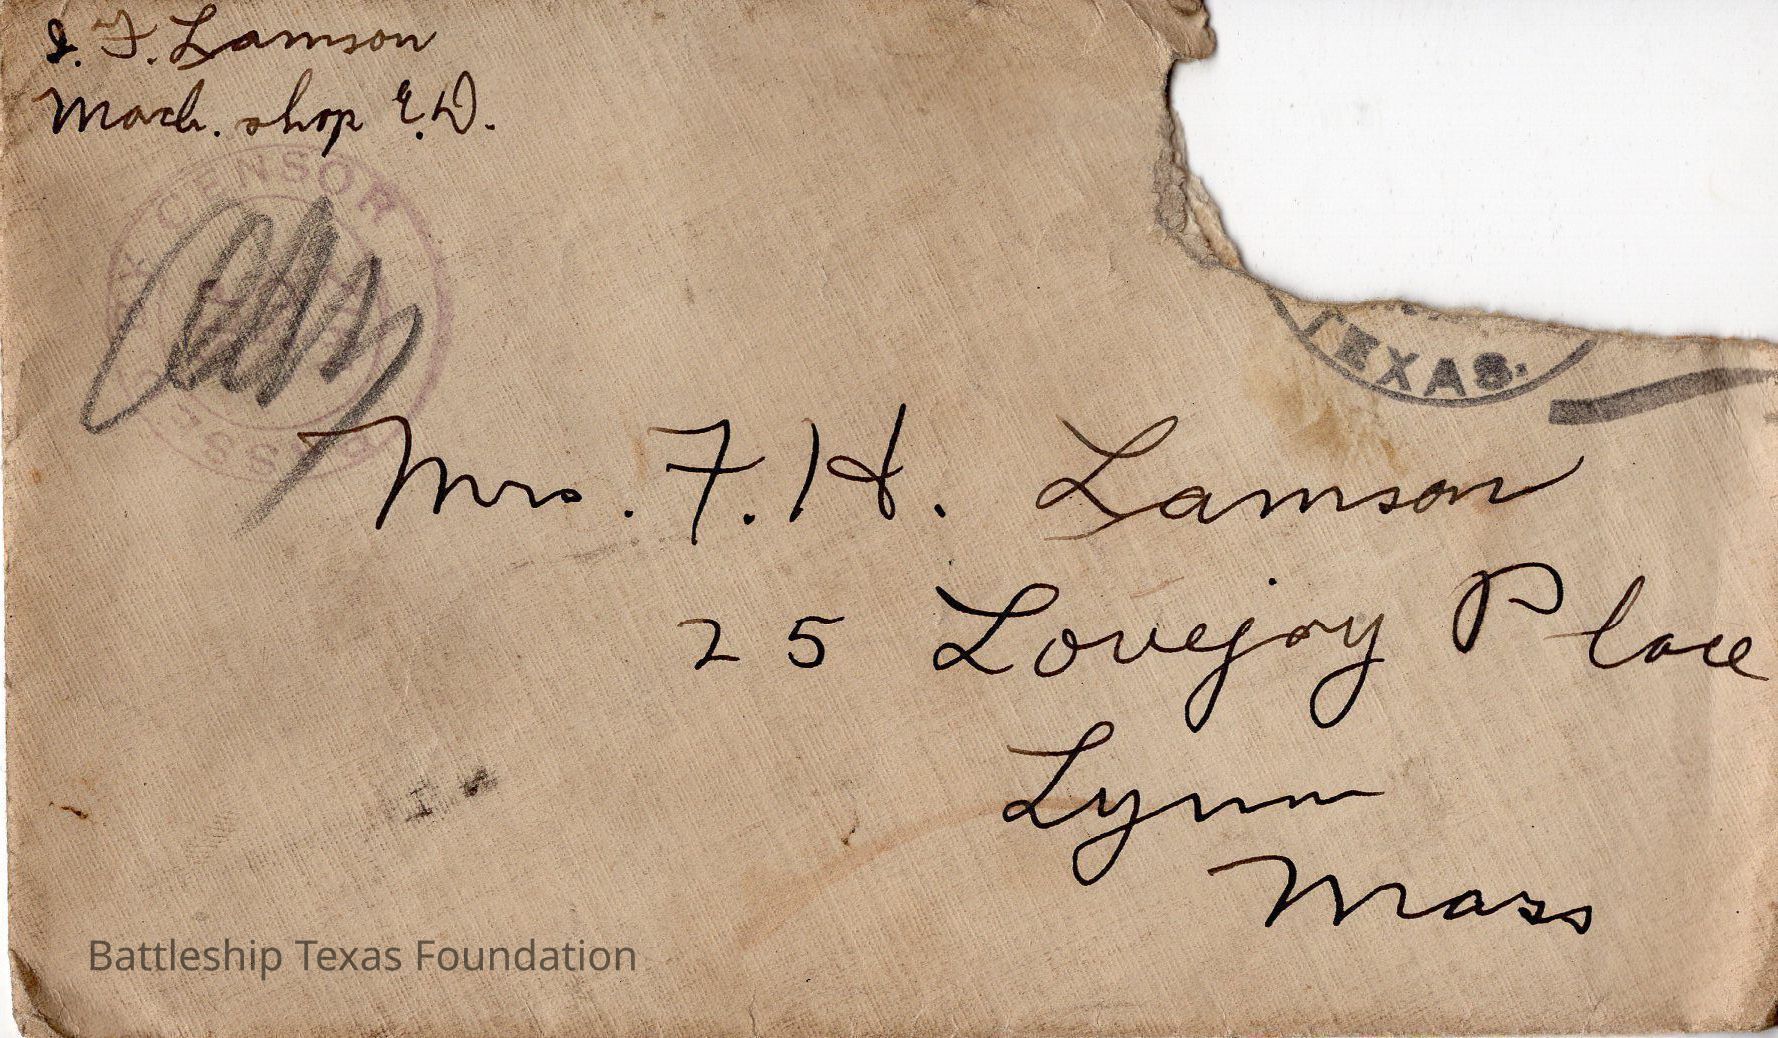 I. F. Lamson
Mach. shop E.D.
CENSOR
PASSED
TEXAS.
Mrs. F. H. Lamson
25 Lovejoy Place
Lynn
Mass
Battleship Texas Foundation